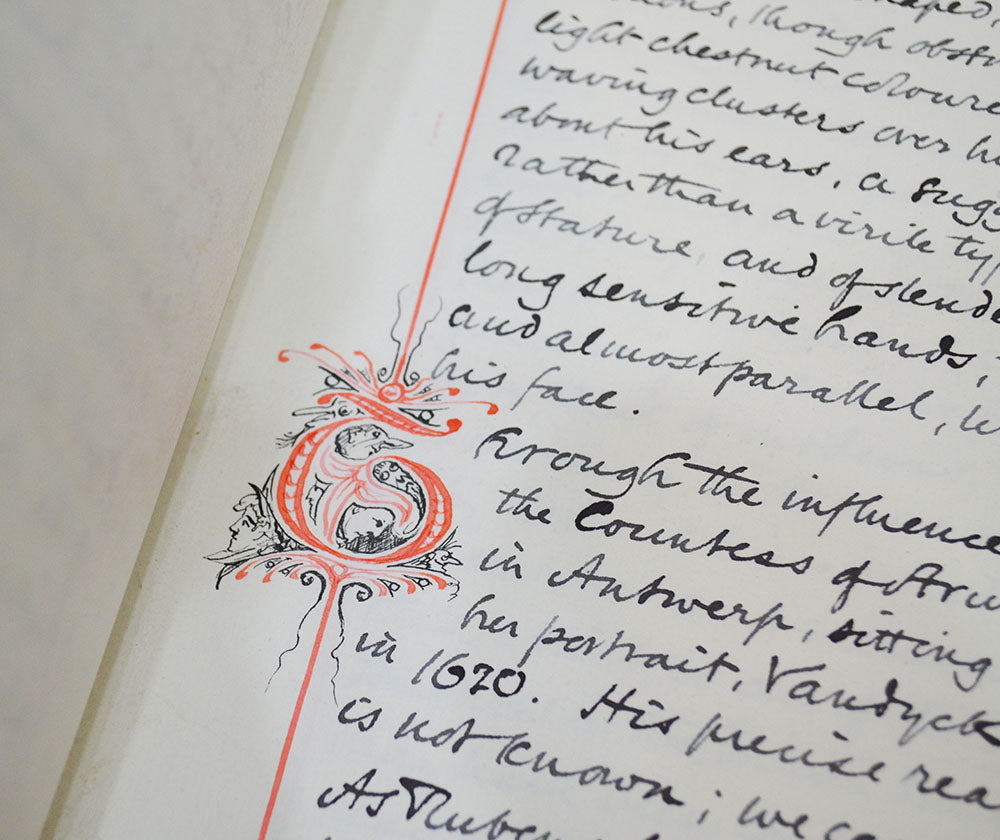 though obstr
light chestnut coloure
waving clusters over h
about his ears, a sugg
rather than a virile ty
of stature, and of slende
long sensitive hands,
and almost parallel, w
his face.
Through the influence
the Countess of Aru
in Antwerp, sitting
her portrait, Vandyck
in 1620. His precise rea
is not known; we ca
As Ruben